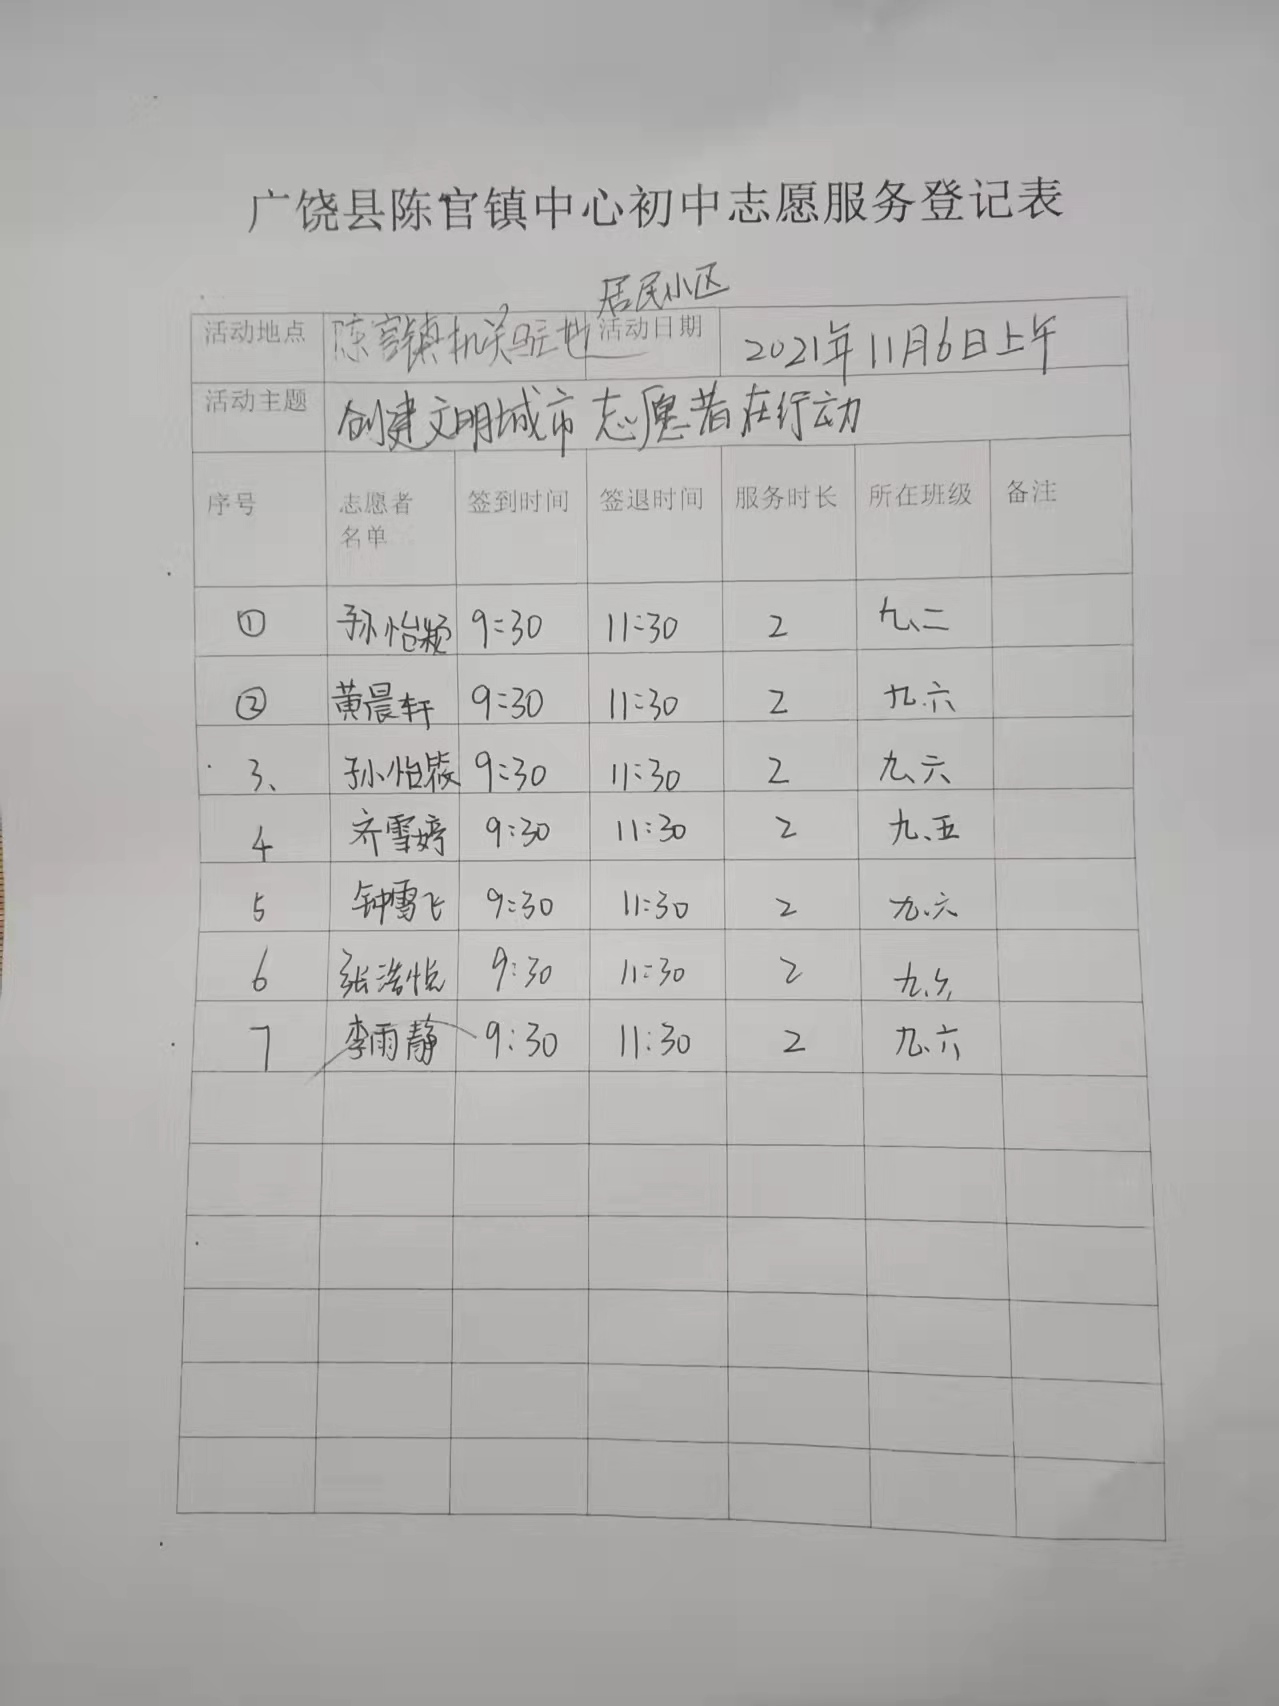 广饶县陈官镇中心初中志愿服务登记表
居民小区
活动地点 陈官镇机关驻地 活动日期 2021年11月6日上午
活动主题 创建文明城市 志愿者在行动
序号 志愿者名单 签到时间 签退时间 服务时长 所在班级 备注
① 孙怡颖 9:30 11:30 2 九、二
② 黄晨轩 9:30 11:30 2 九.六
3、 孙怡筱 9:30 11:30 2 九、六
4 齐雪婷 9:30 11:30 2 九、五
5 钟雪飞 9:30 11:30 2 九.六
6 张浩 9:30 11:30 2 九、
7 李雨静 9:30 11:30 2 九.六